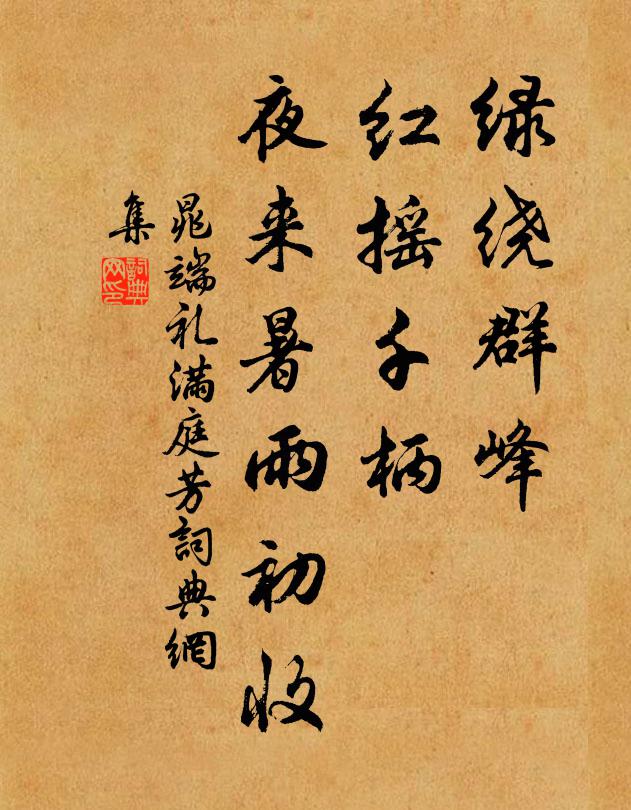 绿绕群峰
红摇千柄
夜来暑雨初收
晁端礼满庭芳詞典網
集
詞典
网印